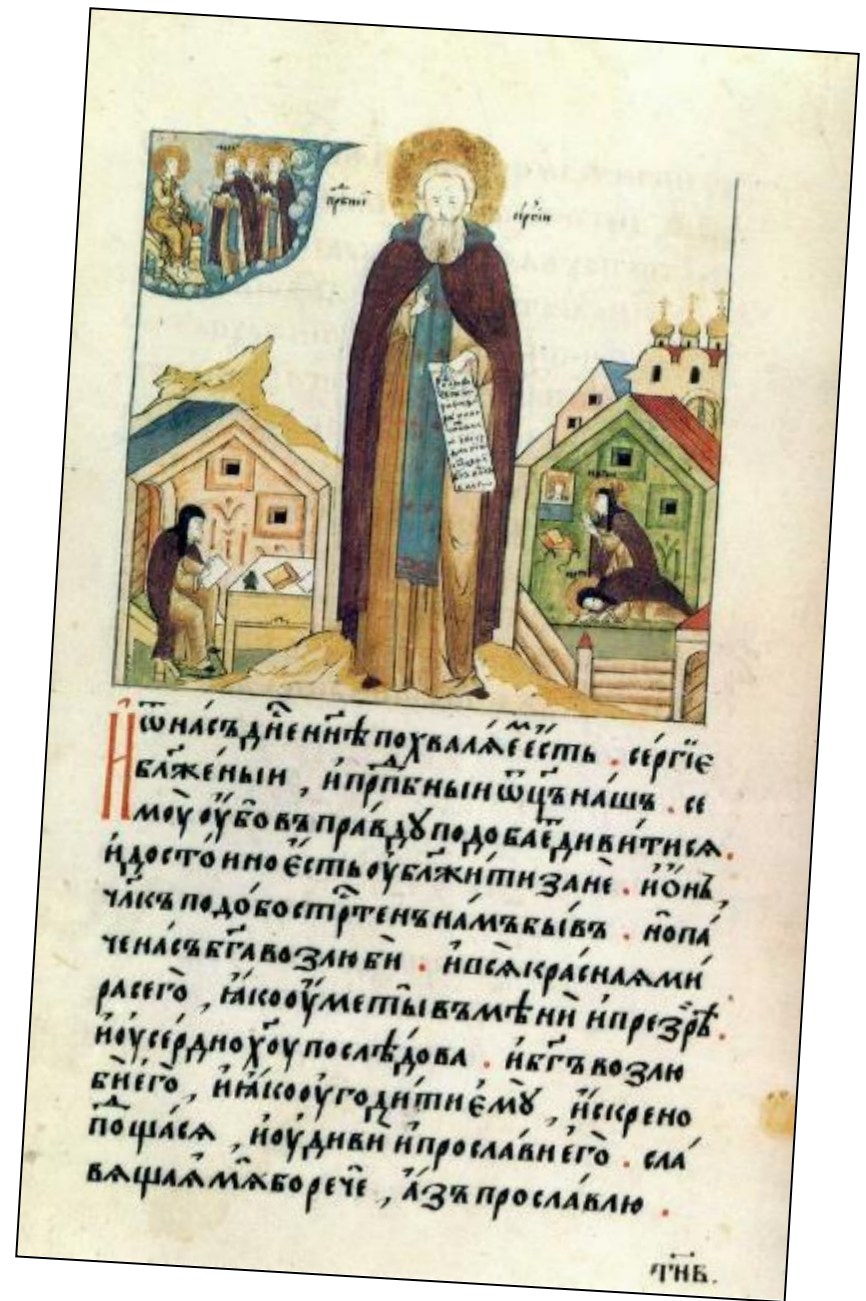 прпбныи
сергіи
И ѿ на́съ дне́ ннѣ похваля́еѐ є҆́сть . се́ргїє
бл҃же́ныи , и҆ прпⷣбныи ѿц҃ъ на́шъ . се
моу̀ оу҆́бо въ пра́вдꙋ подоба́еⷮ диви́тися .
и҆ досто́ино є҆́сть оу҆бл҃жи́ти занѐ . и҆ ѻ҆́нъ ,
чл҃къ подо́бостр҃тенъ на́мъ бы́въ . но̀ па́
че на́съ бг҃а возлюбѝ . и҆ вся̀ кра́сная ми́
ра сего̀ , ꙗ҆́ко оу҆ме́ты въмѣнѝ и҆ презрѣ̀ .
и҆ оу҆се́рдно хо҃у послѣ́дова . и҆ бг҃ъ возлю
бѝ е҆го̀ , и҆ ꙗ҆́ко оу҆годи́ти є҆мꙋ̀ , и҆́скрено
по́ⷣщася , и҆ оу҆дивѝ и҆ просла́ви е҆го̀ . сла́
вящая мя̀ бо речѐ , а҆́зъ просла́влю .
т҃нв .